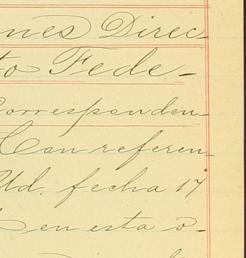 nes Direc
to Fede-
Corresponden-
Con referen-
Ud. fecha 17
en esta o-